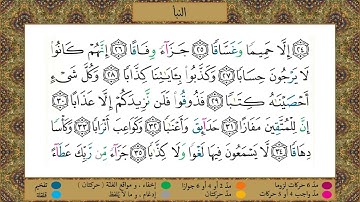 النبأ
٢٤ إِلَّا حَمِيمًا وَغَسَّاقًا ٢٥ جَزَآءً وِفَاقًا ٢٦ إِنَّهُمْ كَانُوا۟
لَا يَرْجُونَ حِسَابًا ٢٧ وَكَذَّبُوا۟ بِـَٔايَـٰتِنَا كِذَّابًا ٢٨ وَكُلَّ شَىْءٍ
أَحْصَيْنَـٰهُ كِتَـٰبًا ٢٩ فَذُوقُوا۟ فَلَن نَّزِيدَكُمْ إِلَّا عَذَابًا ٣٠
إِنَّ لِلْمُتَّقِينَ مَفَازًا ٣١ حَدَآئِقَ وَأَعْنَـٰبًا ٣٢ وَكَوَاعِبَ أَتْرَابًا ٣٣ وَكَأْسًا
دِهَاقًا ٣٤ لَّا يَسْمَعُونَ فِيهَا لَغْوًا وَلَا كِذَّٰبًا ٣٥ جَزَآءً مِّن رَّبِّكَ عَطَآءً
مدّ ٦ حركات لزوما مدّ ٢ أو ٤ أو ٦ جوازا إخفاء، ومواقع الغنّة (حركتان) تفخيم
مدّ واجب ٤ أو ٥ حركات مدّ حركتان إدغام، وما لا يلفظ قلقلة